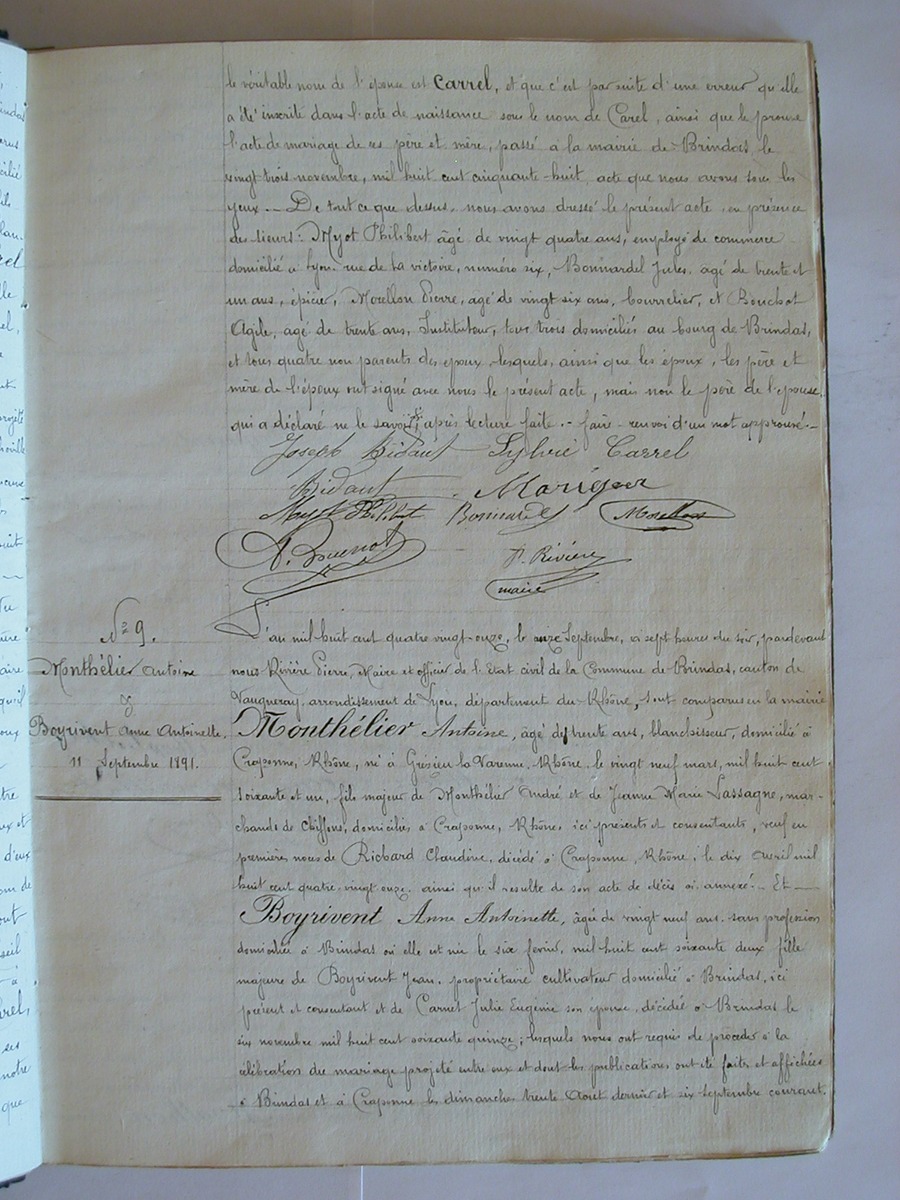 le véritable nom de l'épouse est Carrel, et que c'est par suite d'une erreur qu'elle
a été inscrite dans l'acte de naissance sous le nom de Carel, ainsi que le prouve
l'acte de mariage de ses père et mère, passé à la mairie de Brindas, le
vingt-trois novembre, mil huit cent cinquante-huit, acte que nous avons sous les
yeux. — De tout ce que dessus, nous avons dressé le présent acte en présence
des sieurs: Myot Philibert âgé de vingt quatre ans, employé de commerce
domicilié à Lyon rue de la victoire, numéro six, Bonnardel Jules, agé de trente et
un ans, épicier, Morellon Pierre, agé de vingt six ans, bourrelier, et
agé de trente ans, Instituteur, tous trois domiciliés au bourg de Brindas,
et tous quatre non parents des époux, lesquels, ainsi que les époux, les père et
mère de l'époux ont signé avec nous le présent acte, mais non le père de l'épouse,
qui a déclaré ne le savoir, après lecture faite. - faire - renvoi d'un mot approuvé. -
Joseph Bidaut Sylvie Carrel
Bidaut
Myot Philibert Bonnardel Morellon
P. Rivière
maire
N° 9.
Monthélier Antoine
&
Boyrivent Anne Antoinette.
11 Septembre 1891.
L'an mil huit cent quatre vingt-onze, le onze Septembre, à sept heures du soir, pardevant
nous Rivière Pierre, Maire et officier de l'Etat civil de la Commune de Brindas, canton de
Vaugneray, arrondissement de Lyon, département du Rhône, sont comparus en la mairie
Monthélier Antoine, âgé de trente ans, blanchisseur, domicilié à
Craponne, Rhône, né à Grézieu la Varenne, Rhône, le vingt neuf mars, mil huit cent
soixante et un, fils majeur de Monthélier André et de Jeanne Marie Lassagne, mar-
chands de chiffons, domiciliés à Craponne, Rhône, ici présents et consentants, veuf en
premières noces de Richard Claudine, décédé à Craponne, Rhône, le dix avril mil
huit cent quatre-vingt onze, ainsi qu'il resulte de son acte de décès ci annexé. - Et —
Boyrivent Anne Antoinette, âgée de vingt neuf ans, sans profession
domiciliée à Brindas où elle est née le six fevrier, mil huit cent soixante deux fille
majeure de Boyrivent Jean, propriétaire cultivateur domicilié à Brindas, ici
présent et consentant et de Carnet Julie Eugénie son épouse, décédée à Brindas le
six novembre mil huit cent soixante quinze; lesquels nous ont requis de procéder à la
célébration du mariage projeté entre eux et dont les publications ont été faites et affichées
à Brindas et à Craponne les dimanches trente Août dernier et six septembre courant.